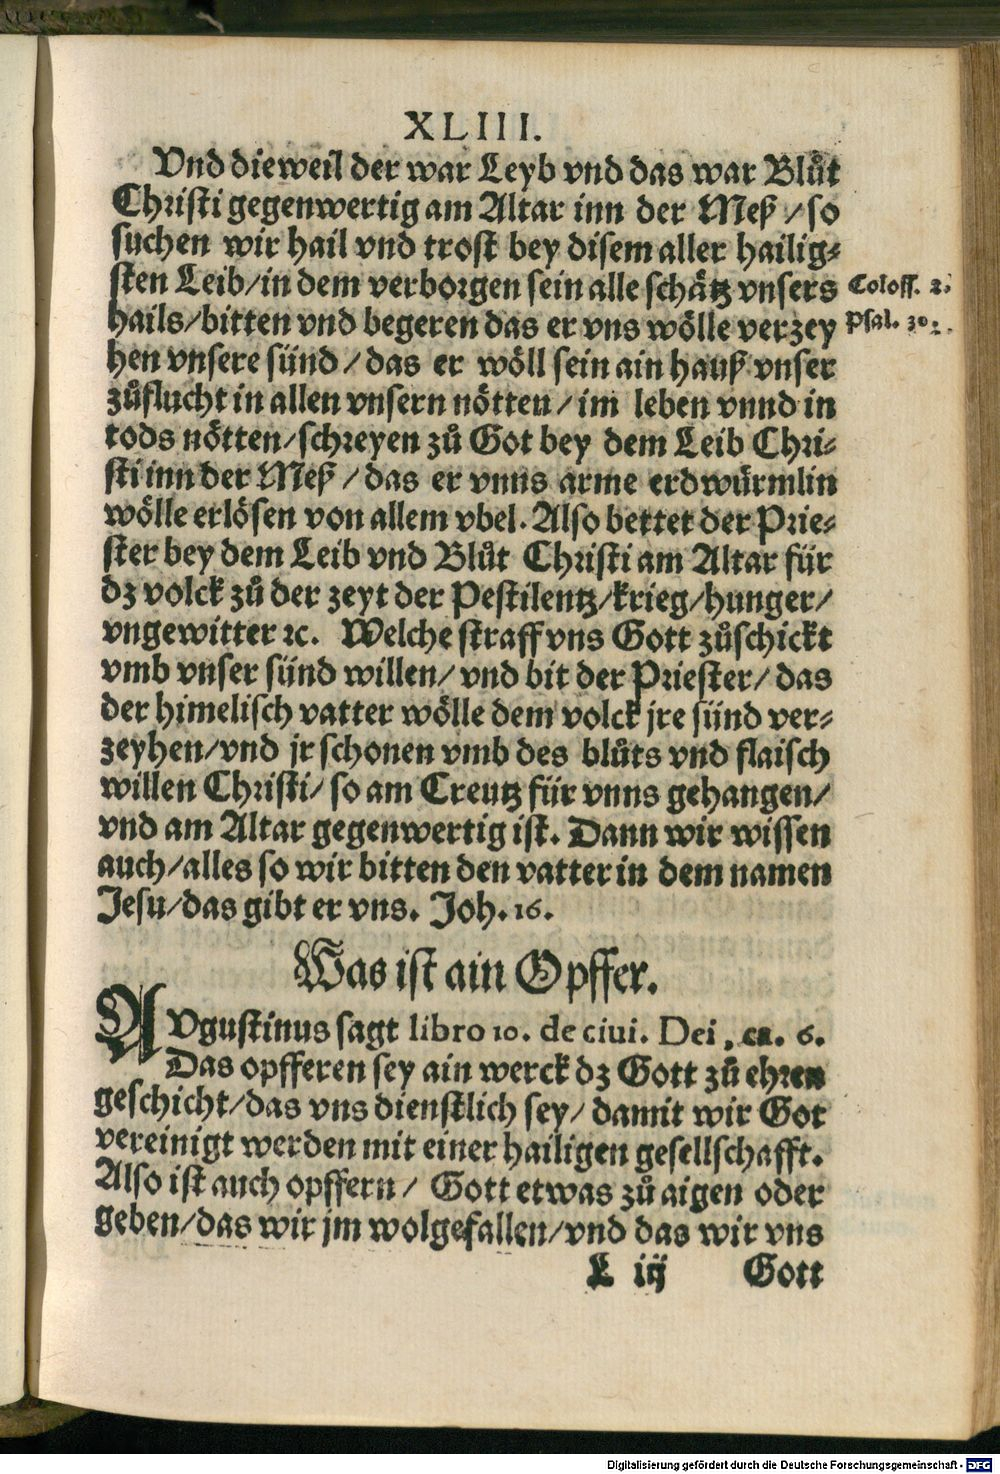 XLIII.
Vnd dieweil der war Leyb vnd das war Blůt
Christi gegenwertig am Altar inn der Meß / so
suchen wir hail vnd trost bey disem aller hailig⸗
sten Leib/in dem verborgen sein alle schätz vnsers
Coloss. 2.
hails/bitten vnd begeren das er vns wölle verzey
Psal. 30.
hen vnsere sünd / das er wöll sein ain hauß vnser
zůflucht in allen vnsern nötten/ im leben vnnd in
tods nötten/schreyen zů Got bey dem Leib Chri⸗
sti inn der Meß / das er vnns arme erdwürmlin
wölle erlösen von allem vbel. Also bettet der Prie⸗
ster bey dem Leib vnd Blůt Christi am Altar für
dz volck zů der zeyt der Pestilentz/krieg/hunger/
vngewitter ꝛc. Welche straff vns Gott zůschickt
vmb vnser sünd willen/ vnd bit der Priester/ das
der himelisch vatter wölle dem volck jre sünd ver⸗
zeyhen/vnd jr schonen vmb des blůts vnd flaisch
willen Christi/ so am Creutz für vnns gehangen/
vnd am Altar gegenwertig ist. Dann wir wissen
auch/alles so wir bitten den vatter in dem namen
Jesu/das gibt er vns. Joh. 16.
Was ist ain Opffer.
AVgustinus sagt libro 10. de ciui. Dei, ca. 6.
Das opfferen sey ain werck dz Gott zů ehren
geschicht/das vns dienstlich sey/ damit wir Got
vereinigt werden mit einer hailigen gesellschafft.
Also ist auch opffern/ Gott etwas zů aigen oder
geben/das wir jm wolgefallen/vnd das wir vns
L iij Gott
Digitalisierung gefördert durch die Deutsche Forschungsgemeinschaft - DFG